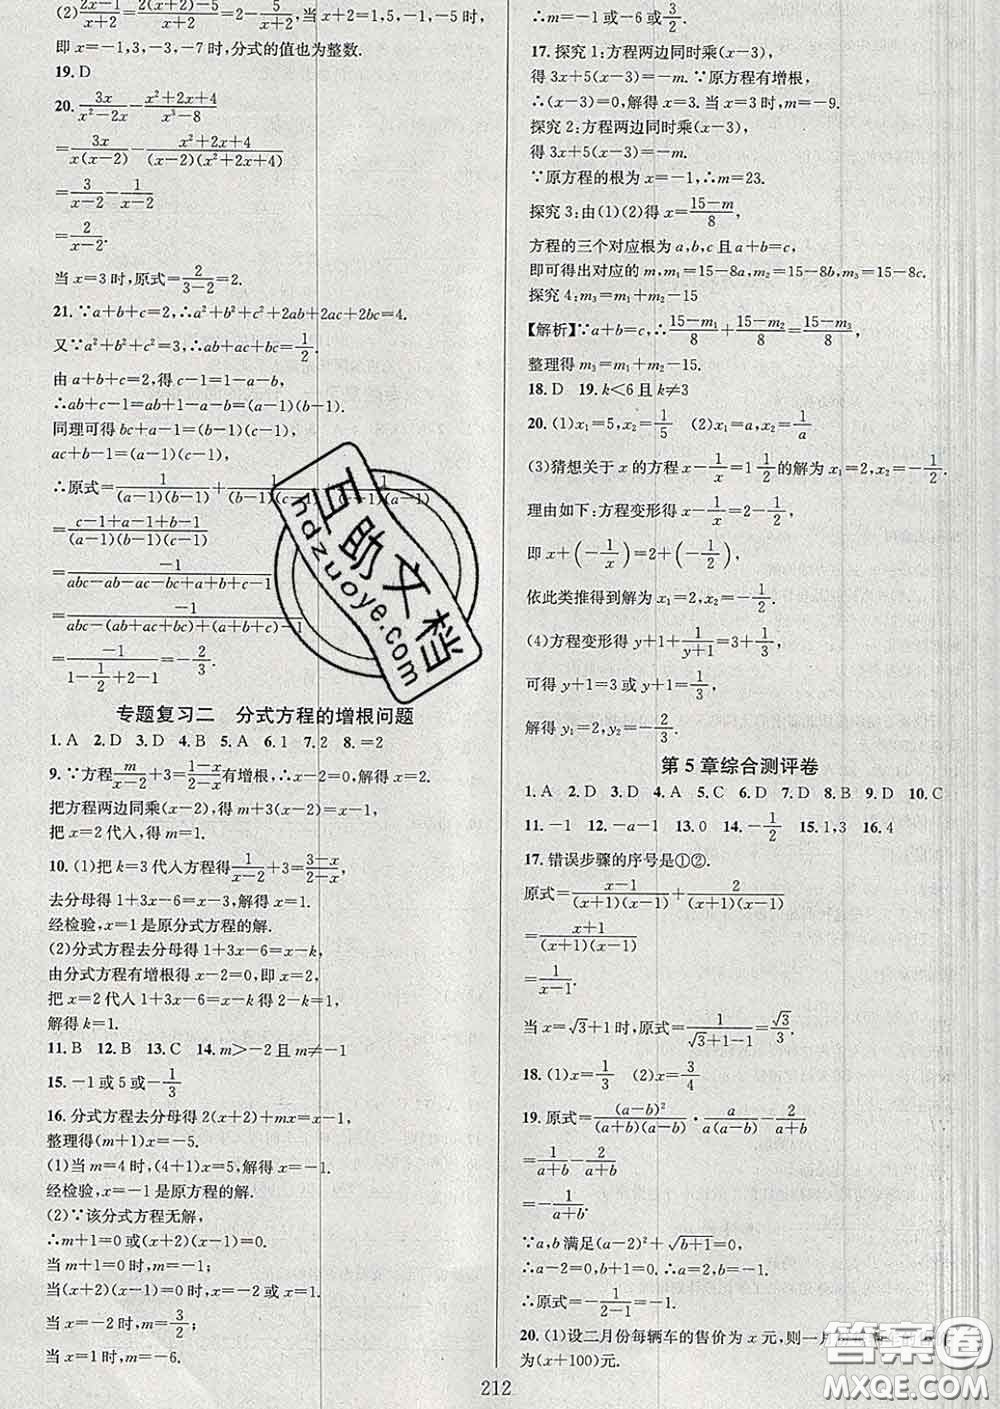 (2)\frac{2x-1}{x+2}=\frac{2(x+2)-5}{x+2}=2-\frac{5}{x+2},当 x+2=5,1,-1,-5 时,
即 x=-1,3,-3,-7 时,分式的值也为整数.
19. D
20. \frac{3x}{x²-2x}-\frac{x²+2x+4}{x³-8}
=\frac{3x}{x(x-2)}-\frac{x²+2x+4}{(x-2)(x²+2x+4)}
=\frac{3}{x-2}-\frac{1}{x-2}
=\frac{2}{x-2}.
当 x=3 时,原式=\frac{2}{3-2}=2.
21. ∵a+b+c=2,∴a²+b²+c²+2ab+2ac+2bc=4.
又∵a²+b²+c²=3,∴ab+ac+bc=\frac{1}{2}.
由 a+b+c=2,得 c-1=1-a-b,
∴ab+c-1=ab+1-a-b=(a-1)(b-1).
同理可得 bc+a-1=(b-1)(c-1),
ac+b-1=(a-1)(c-1),
∴原式=\frac{1}{(a-1)(b-1)}+\frac{1}{(b-1)(c-1)}
=\frac{c-1+a-1+b-1}{(a-1)(b-1)(c-1)}
=\frac{-1}{abc-ab-ac-bc+a+b+c-1}
=\frac{-1}{abc-(ab+ac+bc)+(a+b+c)-1}
=\frac{-1}{1-\frac{1}{2}+2-1}=-\frac{2}{3}.
专题复习二 分式方程的增根问题
1. A 2. D 3. D 4. B 5. A 6. 1 7. 2 8. =2
9. ∵方程\frac{m}{x-2}+3=\frac{1-x}{2-x}有增根,
把方程两边同乘(x-2),得 m+3(x-2)=x-1.
把 x=2 代入,得 m=1.
10. (1)把 k=3 代入方程得\frac{1}{x-2}+3=\frac{3-x}{2-x},
去分母得 1+3x-6=x-3,解得 x=1.
经检验,x=1 是原分式方程的解.
(2)分式方程去分母得 1+3x-6=x-k,
由分式方程有增根得 x-2=0,即 x=2.
把 x=2 代入 1+3x-6=x-k 得 2-k=1,
解得 k=1.
11. B 12. B 13. C 14. m>-2 且 m≠-1
15. -1 或 5 或-\frac{1}{3}
16. 分式方程去分母得 2(x+2)+mx=x-1,
整理得(m+1)x=-5.
(1)当 m=4 时,(4+1)x=-5,解得 x=-1.
经检验,x=-1 是原方程的解.
(2)∵该分式方程无解,
∴m+1=0 或(x+2)(x-1)=0.
当 m+1=0 时,m=-1;
当(x+2)(x-1)=0 时,x=-2 或 x=1.
当 x=-2 时,m=\frac{3}{2};
当 x=1 时,m=-6.
∴m=-1 或-6 或\frac{3}{2}.
17. 探究 1:方程两边同时乘(x-3),
得 3x+5(x-3)=-m. ∵原方程有增根,
∴(x-3)=0,解得 x=3. 当 x=3 时,m=-9.
探究 2:方程两边同时乘(x-3),
得 3x+5(x-3)=-m.
∵原方程的根为 x=-1,∴m=23.
探究 3:由(1)(2)得 x=\frac{15-m}{8},
方程的三个对应根为 a,b,c 且 a+b=c,
即可得出对应的 m,m₁=15-8a,m₂=15-8b,m₃=15-8c.
探究 4:m₃=m₁+m₂-15
【解析】∵a+b=c,∴\frac{15-m₁}{8}+\frac{15-m₂}{8}=\frac{15-m₃}{8},
整理得 m₃=m₁+m₂-15.
18. D 19. k<6 且 k≠3
20. (1)x₁=5,x₂=\frac{1}{5} (2)x₁=a,x₂=\frac{1}{a}
(3)猜想关于 x 的方程 x-\frac{1}{x}=1\frac{1}{2}的解为 x₁=2,x₂=-\frac{1}{2}.
理由如下:方程变形得 x-\frac{1}{x}=2-\frac{1}{2},
即 x+(-\frac{1}{x})=2+(-\frac{1}{2}),
依此类推得到解为 x₁=2,x₂=-\frac{1}{2}.
(4)方程变形得 y+1+\frac{1}{y+1}=3+\frac{1}{3},
可得 y+1=3 或 y+1=\frac{1}{3},
解得 y₁=2,y₂=-\frac{2}{3}.
第 5 章综合测评卷
1. A 2. D 3. D 4. A 5. C 6. D 7. D 8. B 9. D 10. C
11. -1 12. -a-1 13. 0 14. -\frac{1}{2} 15. 1,3 16. 4
17. 错误步骤的序号是①②.
原式=\frac{x-1}{(x+1)(x-1)}+\frac{2}{(x+1)(x-1)}
=\frac{x+1}{(x+1)(x-1)}
=\frac{1}{x-1}.
当 x=√3+1 时,原式=\frac{1}{√3+1-1}=\frac{√3}{3}.
18. (1)x=\frac{1}{3} (2)x=\frac{3}{4}
19. 原式=\frac{(a-b)²}{(a+b)(a-b)}·\frac{a}{a(a-b)}-\frac{2}{a+b}
=\frac{1}{a+b}-\frac{2}{a+b}
=-\frac{1}{a+b}.
∵a,b 满足(a-2)²+√(b+1)=0,
∴a-2=0,b+1=0,∴a=2,b=-1.
∴原式=-\frac{1}{2-1}=-1.
20. (1)设二月份每辆车的售价为 x 元,则一月
为(x+100)元.
212
互助文档
hdzuoye.com
答案圈
MXQE.COM